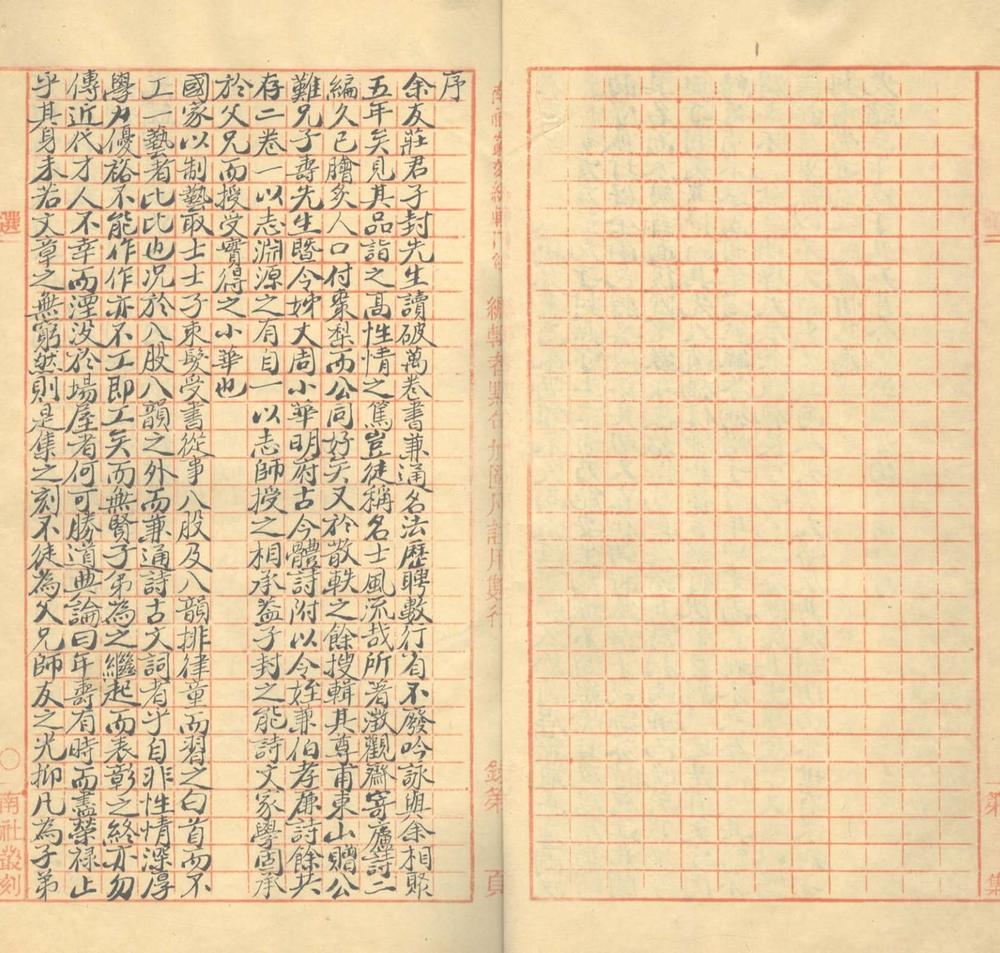 序
余友莊君子封先生讀破萬卷書兼通名法歷聘數行省不廢吟詠與余相聚
五年矣見其品詣之高性情之篤豈徒稱名士風流哉所著澂觀齋寄廬詩二
編久已膾炙人口付棗梨而公同好矣又於散軼之餘搜輯其尊甫東山贈公
難兄子壽先生暨令姊丈周小華明府古今體詩附以令姪兼伯孝廉詩餘共
存二卷一以志淵源之有自一以志師授之相承蓋子封之能詩文家學固承
於父兄而授受實得之小華也
國家以制藝取士士子束髮受書從事八股及八韻排律童而習之白首而不
工一藝者比比也况於八股八韻之外而兼通詩古文詞者乎自非性情深厚
學力優裕不能作作亦不工即工矣而無賢子弟為之繼起而表彰之終亦勿
傳近代才人不幸而湮没於場屋者何可勝道典論曰年壽有時而盡榮祿止
乎其身未若文章之無窮然則是集之刻不徒為父兄師友之光抑凡為子弟
選
南社叢刻
編輯者
頁
第
集